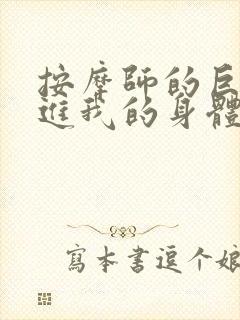 按摩師的巨
進我的身體
寫本書逗个娘